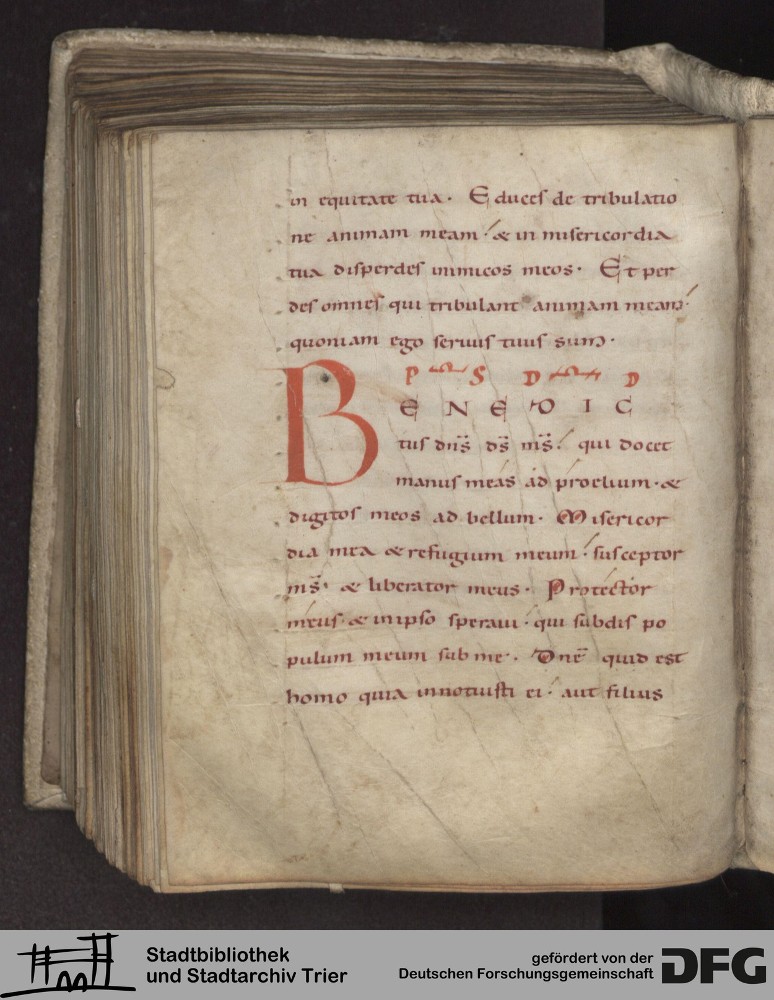 in equitate tua. Educes de tribulatio
ne animam meam. & in misericordia
tua disperdes inimicos meos. Et per
des omnes qui tribulant animam meam.
quoniam ego servus tuus sum.
P S D D
BENEDIC
tus dn̄s ds̄ ms̄. qui docet
manus meas ad proelium. &
digitos meos ad bellum. Misericor
dia mea & refugium meum. susceptor
ms̄. & liberator meus. Protector
meus. & in ipso speravi. qui subdis po
pulum meum sub me. Dnē quid est
homo quia innotuisti ei. aut filius
Stadtbibliothek
und Stadtarchiv Trier
gefördert von der
Deutschen Forschungsgemeinschaft
DFG